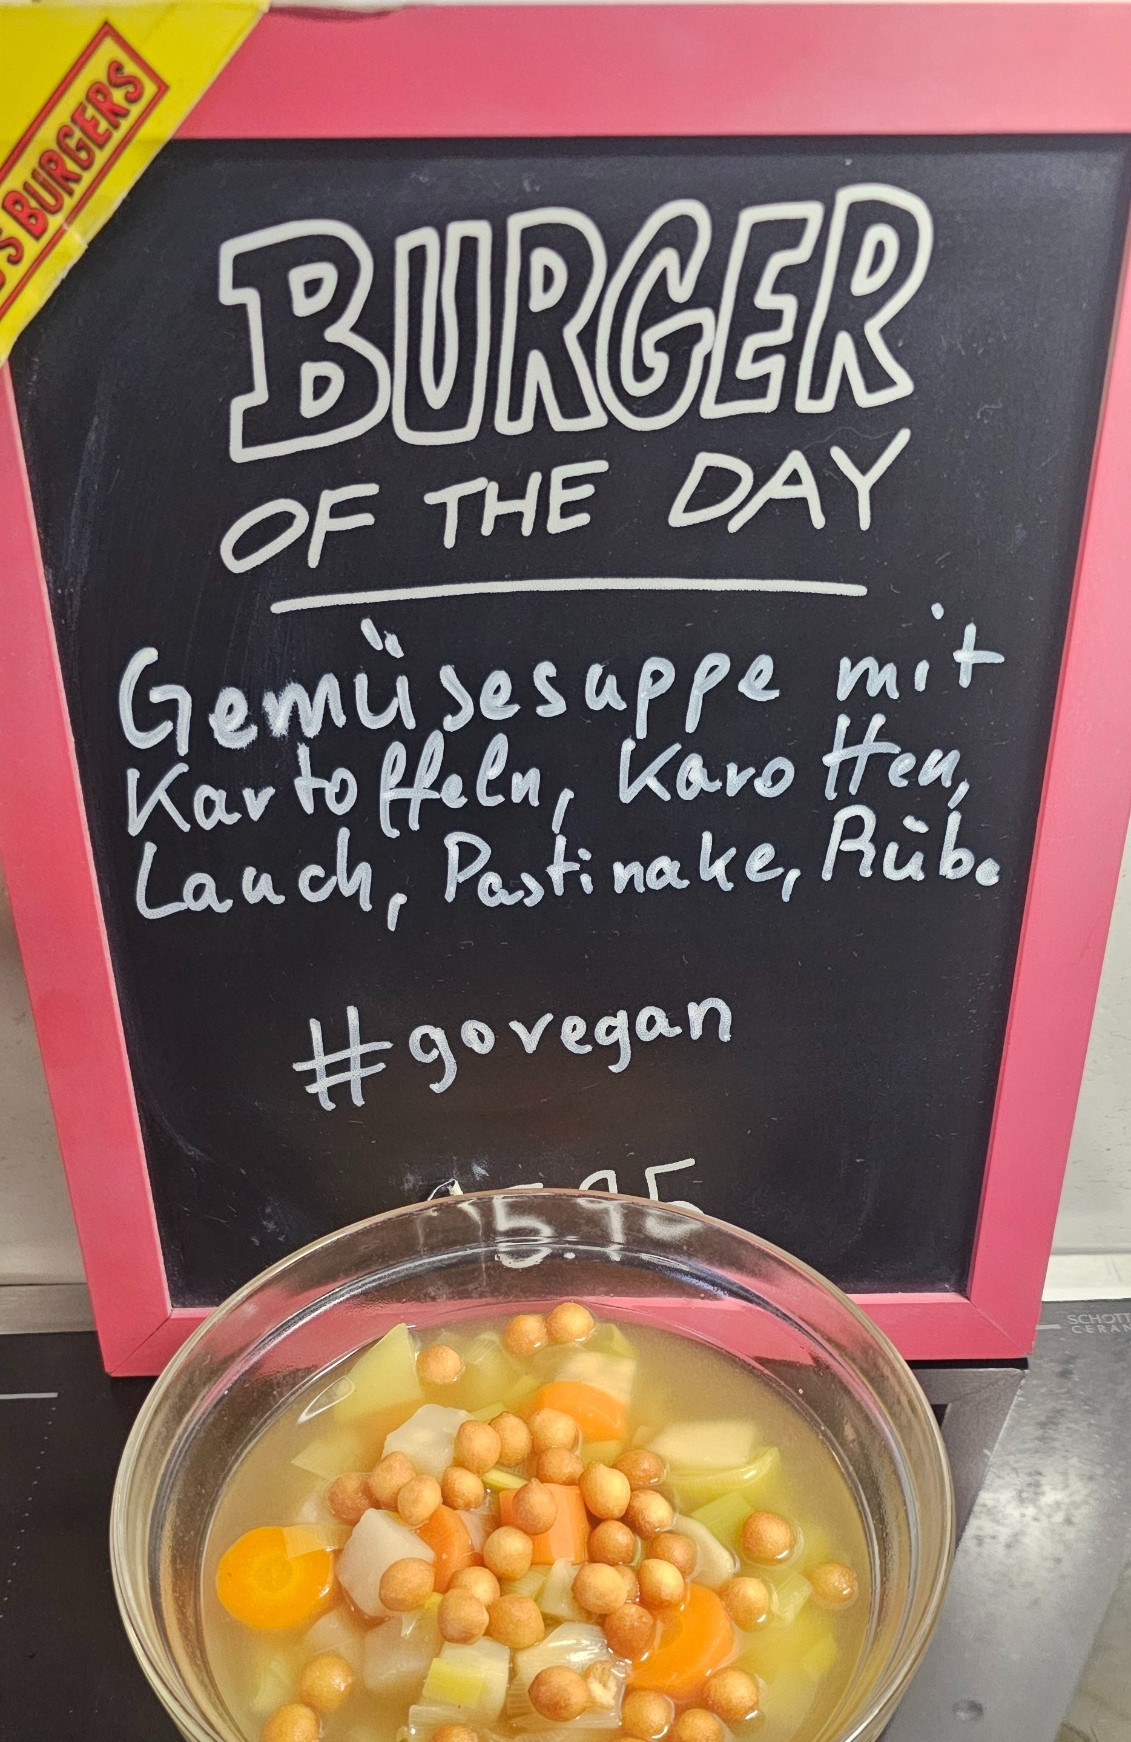 'S BURGERS
BURGER
OF THE DAY
Gemüsesuppe mit
Kartoffeln, Karotten,
Lauch, Pastinake, Rübe
#govegan
5.95
SCHOTT
CERAN